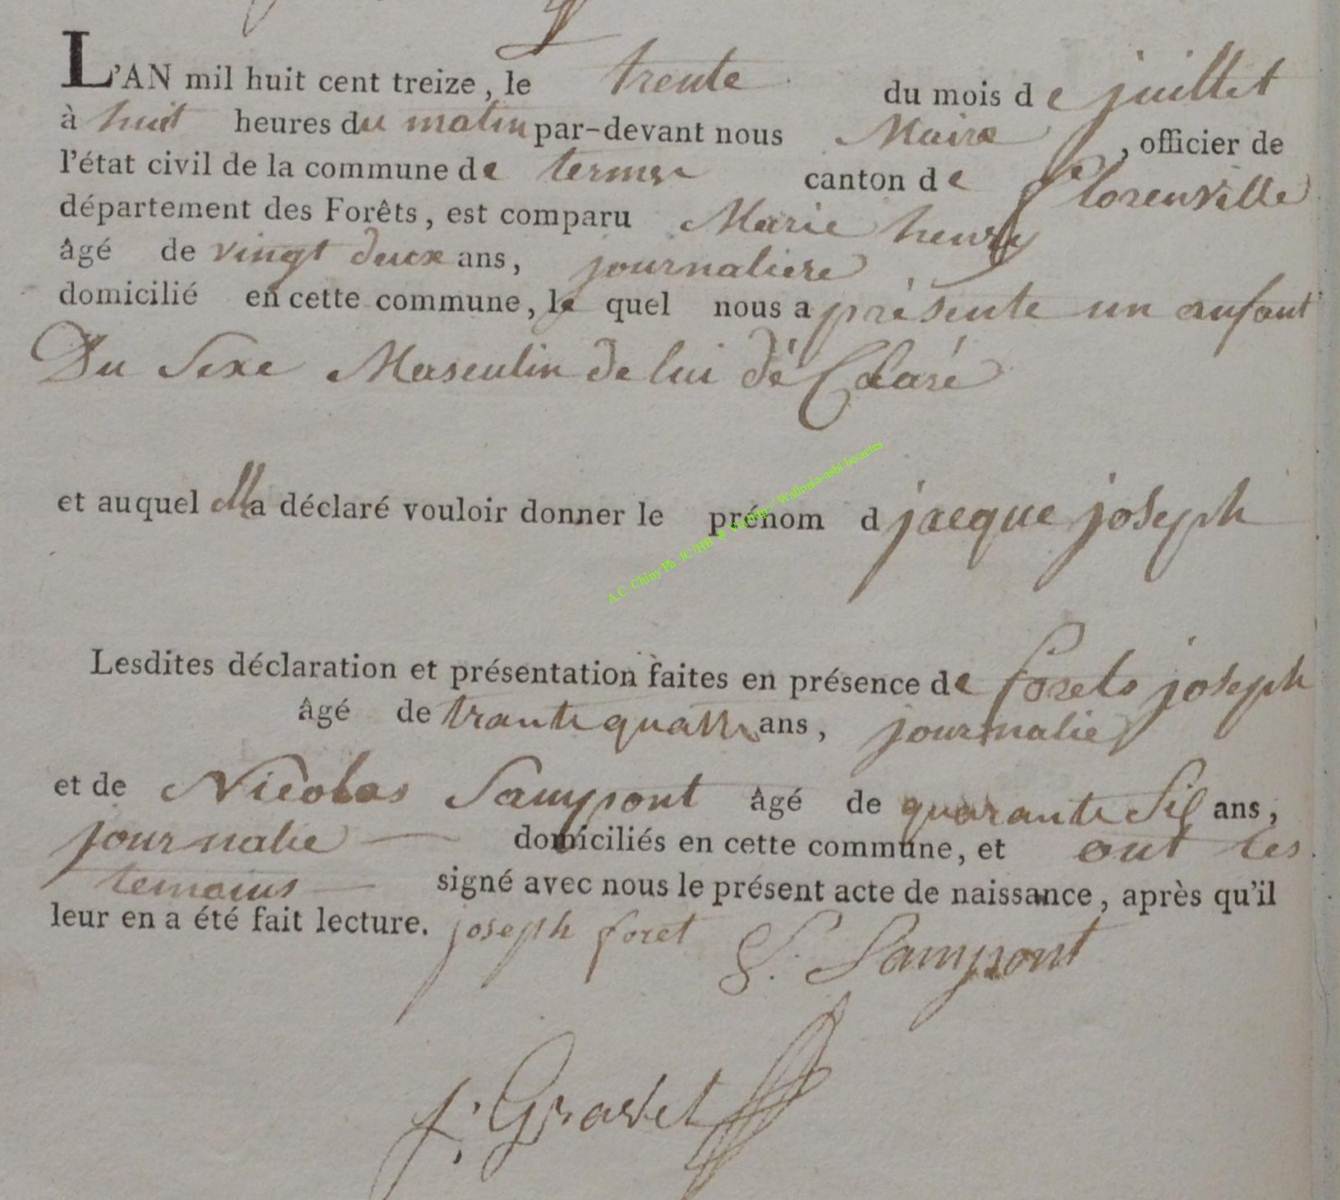 L'AN mil huit cent treize, le trente du mois de juillet
à huit heures du matin par-devant nous Maire, officier de
l'état civil de la commune de termes canton de Florenville
département des Forêts, est comparu Marie henry
âgé de vingt deux ans, journaliere
domicilié en cette commune, le quel nous a présente un anfant
Du Sexe Masculin de lui dé Claré
et auquel ella déclaré vouloir donner le prénom d jacque joseph
Lesdites déclaration et présentation faites en présence de forets joseph
âgé de trante quatre ans, journalie
et de Nicolas Sampont âgé de quarante Sis ans,
journalie domiciliés en cette commune, et ont les
temoins signé avec nous le présent acte de naissance, après qu'il
leur en a été fait lecture. joseph foret Sampont
A.C. Chiny Ph.